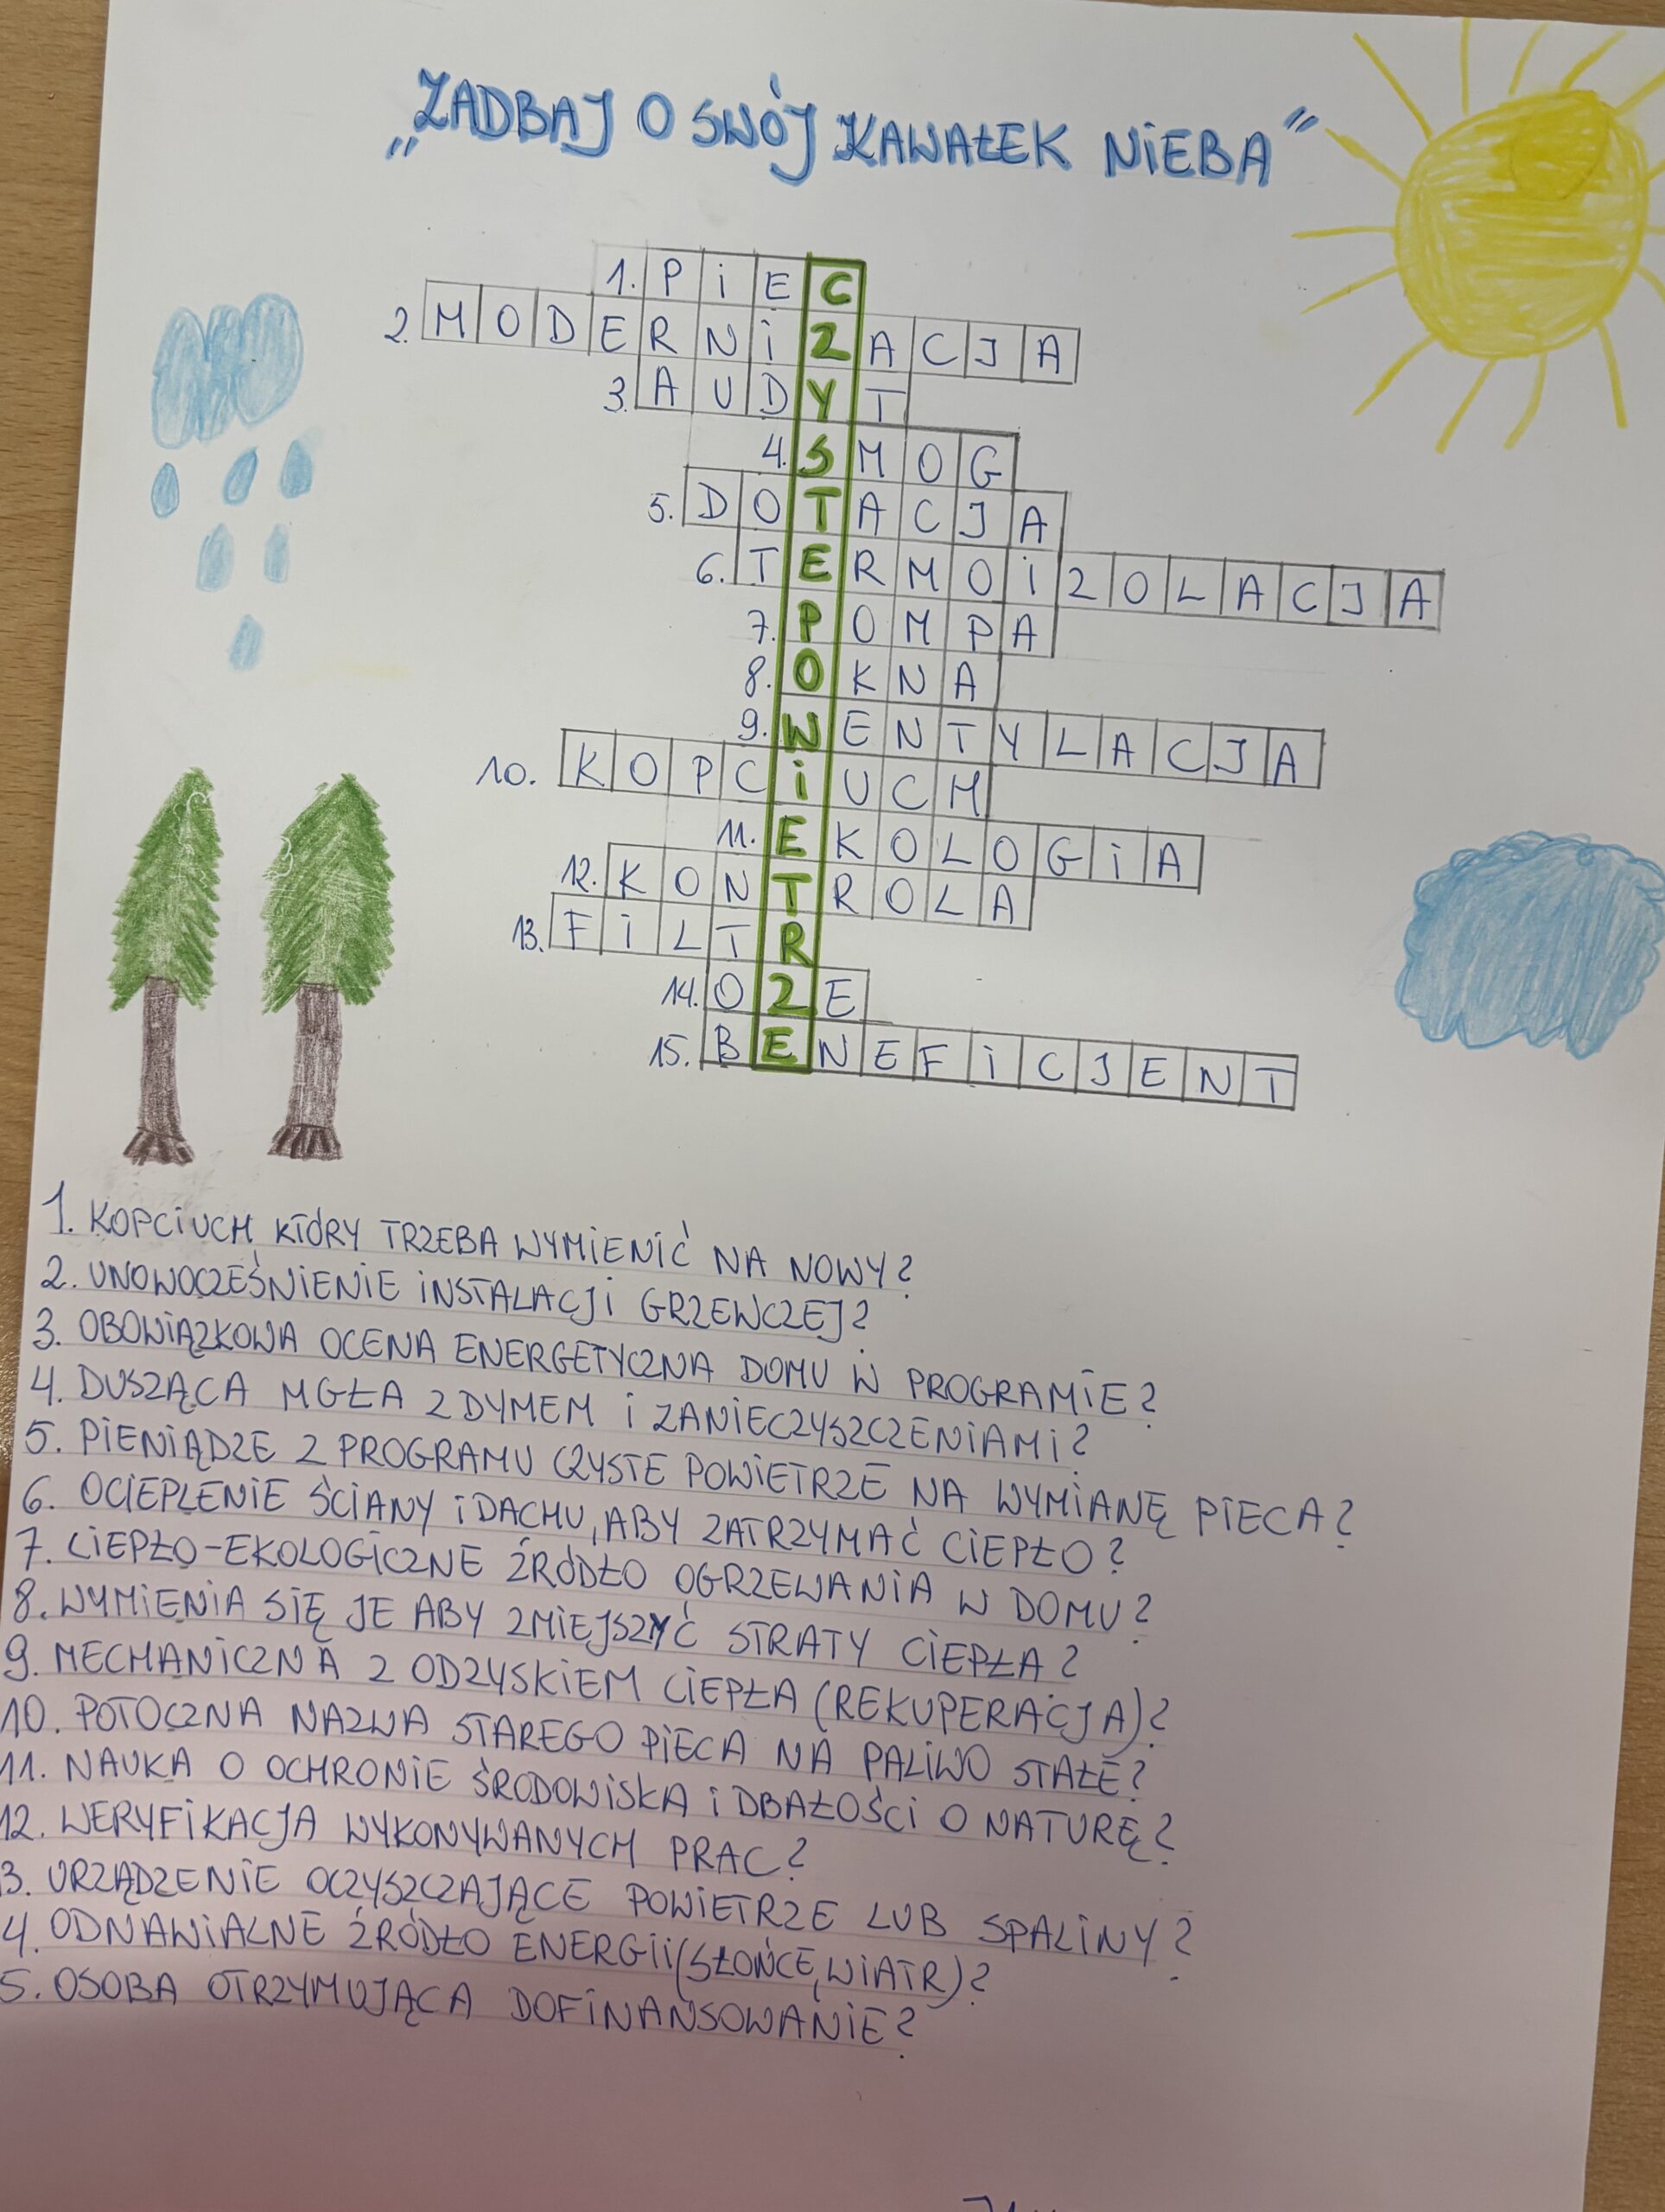 „ZADBAJ O SWÓJ KAWAŁEK NIEBA"
1. PIEC
2. MODERNIZACJA
3. AUDYT
4. SMOG
5. DOTACJA
6. TERMOIZOLACJA
7. POMPA
8. OKNA
9. WENTYLACJA
10. KOPCIUCH
11. EKOLOGIA
12. KONTROLA
13. FILTR
14. OZE
15. BENEFICJENT
1. KOPCIUCH KTÓRY TRZEBA WYMIENIĆ NA NOWY?
2. UNOWOCZEŚNIENIE INSTALACJI GRZEWCZEJ?
3. OBOWIĄZKOWA OCENA ENERGETYCZNA DOMU W PROGRAMIE?
4. DUSZĄCA MGŁA Z DYMEM I ZANIECZYSZCZENIAMI?
5. PIENIĄDZE Z PROGRAMU CZYSTE POWIETRZE NA WYMIANĘ PIECA?
6. OCIEPLENIE ŚCIANY I DACHU, ABY ZATRZYMAĆ CIEPŁO?
7. CIEPŁO-EKOLOGICZNE ŹRÓDŁO OGRZEWANIA W DOMU?
8. WYMIENIA SIĘ JE ABY ZMIEJSZYĆ STRATY CIEPŁA?
9. MECHANICZNA Z ODZYSKIEM CIEPŁA (REKUPERACJA)?
10. POTOCZNA NAZWA STAREGO PIECA NA PALIWO STAŁE?
11. NAUKA O OCHRONIE ŚRODOWISKA I DBAŁOŚCI O NATURĘ?
12. WERYFIKACJA WYKONYWANYCH PRAC?
3. URZĄDZENIE OCZYSZCZAJĄCE POWIETRZE LUB SPALINY?
4. ODNAWIALNE ŹRÓDŁO ENERGII (SŁOŃCE, WIATR)?
5. OSOBA OTRZYMUJĄCA DOFINANSOWANIE?